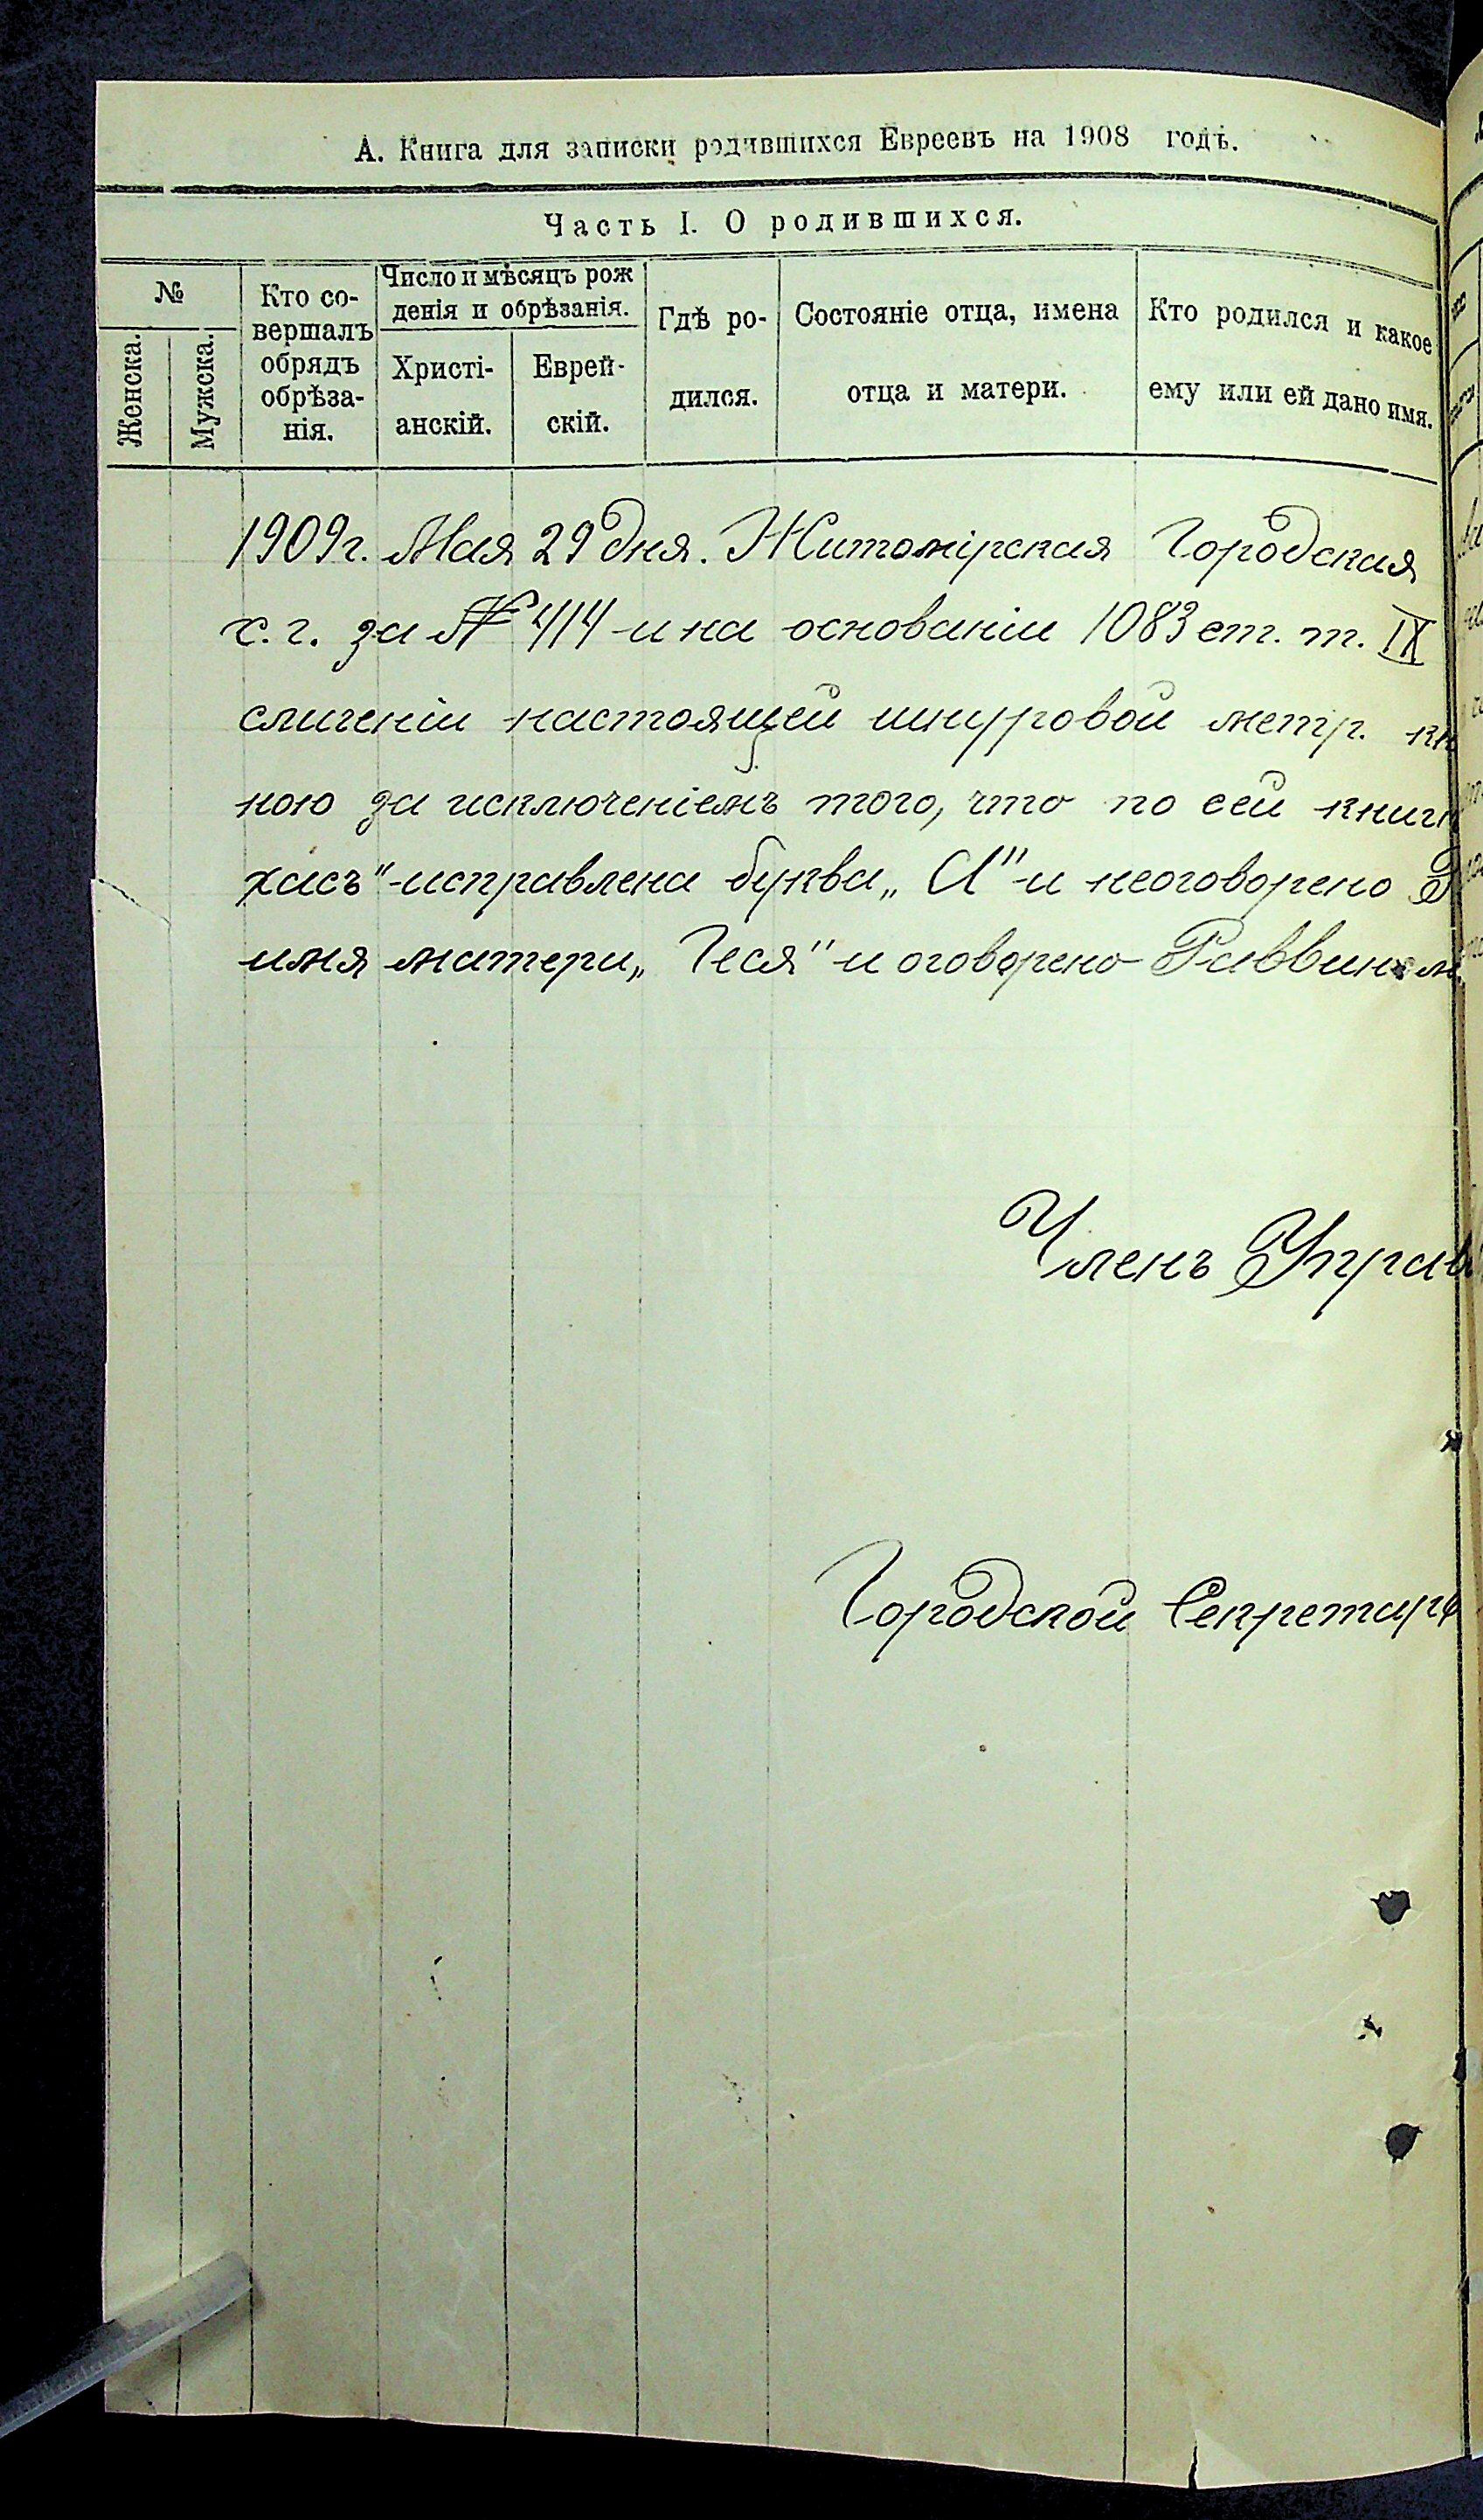 А. Книга для записки родившихся Евреевъ на 1908 годъ.
Часть I. О родившихся.
№
Женска.
Мужска.
Кто со-
вершалъ
обрядъ
обрѣза-
нія.
Число и мѣсяцъ рож
денія и обрѣзанія.
Христі-
анскій.
Еврей-
скій.
Гдѣ ро-
дился.
Состояніе отца, имена
отца и матери.
Кто родился и какое
ему или ей дано имя.
1909 г. Мая 29 дня. Житомірская Городская
с. г. за № 414 и на основаніи 1083 ст. т. IX
сличеніи настоящей шнуровой метр. кн
ною за исключеніемъ того, что по сей книг
хасъ" - исправлена буква „А" - и неоговорено
имя матери „Геся" и оговорено Раввином
Членъ Управ
Городской Секретарь